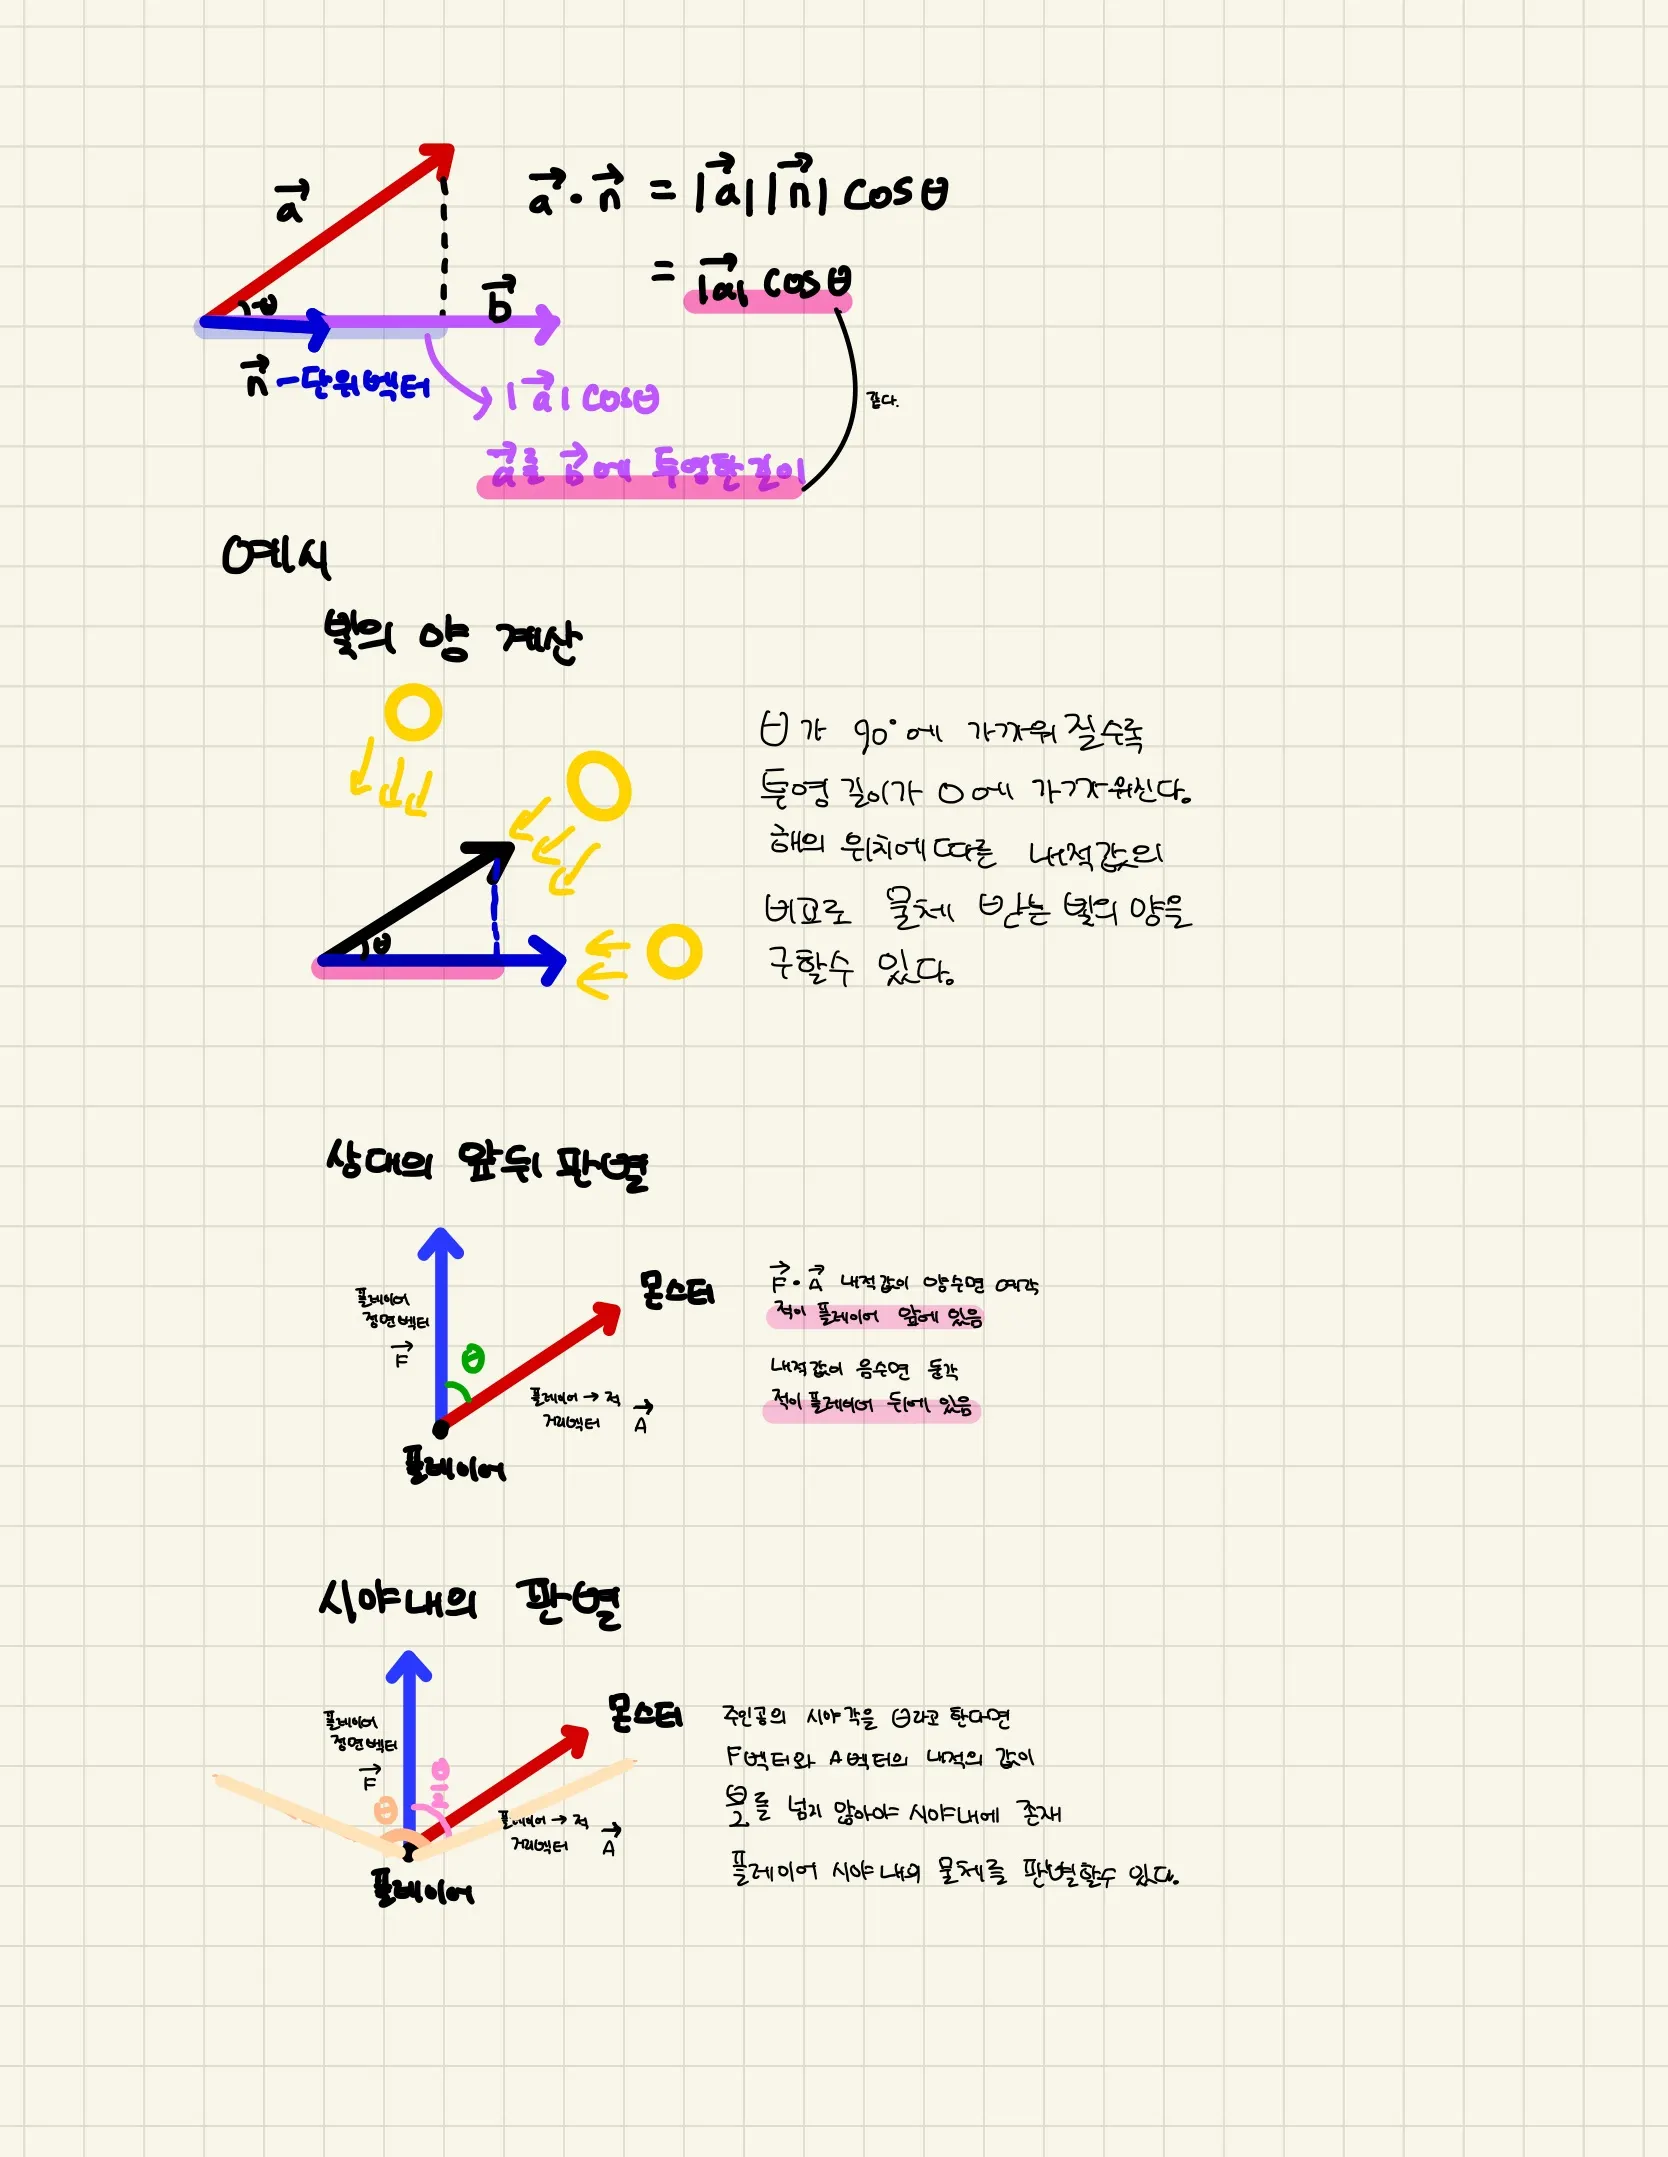 a⃗
a⃗ · n⃗ = |a⃗| |n⃗| cosθ
= |a⃗| cosθ
θ
b⃗
n⃗ - 단위벡터
|a⃗| cosθ
같다.
a⃗를 b⃗에 투영한 길이
예시
빛의 양 계산
θ가 90°에 가까워 질수록
투영 길이가 0에 가까워진다.
해의 위치에 따른 내적값의
비교로 물체 받는 빛의 양을
구할수 있다.
θ
상대의 앞뒤 판별
몬스터
플레이어
정면벡터
F⃗
θ
플레이어 → 적
거리벡터 A⃗
플레이어
F⃗ · A⃗ 내적값이 양수면 예각
적이 플레이어 앞에 있음
내적값이 음수면 둔각
적이 플레이어 뒤에 있음
시야내의 판별
몬스터
플레이어
정면벡터
F⃗
θ
θ/2
플레이어 → 적
거리벡터 A⃗
플레이어
주인공의 시야각을 θ라고 한다면
F벡터와 A벡터의 내적의 값이
θ/2를 넘지 않아야 시야내에 존재
플레이어 시야 내의 물체를 판별할수 있다.